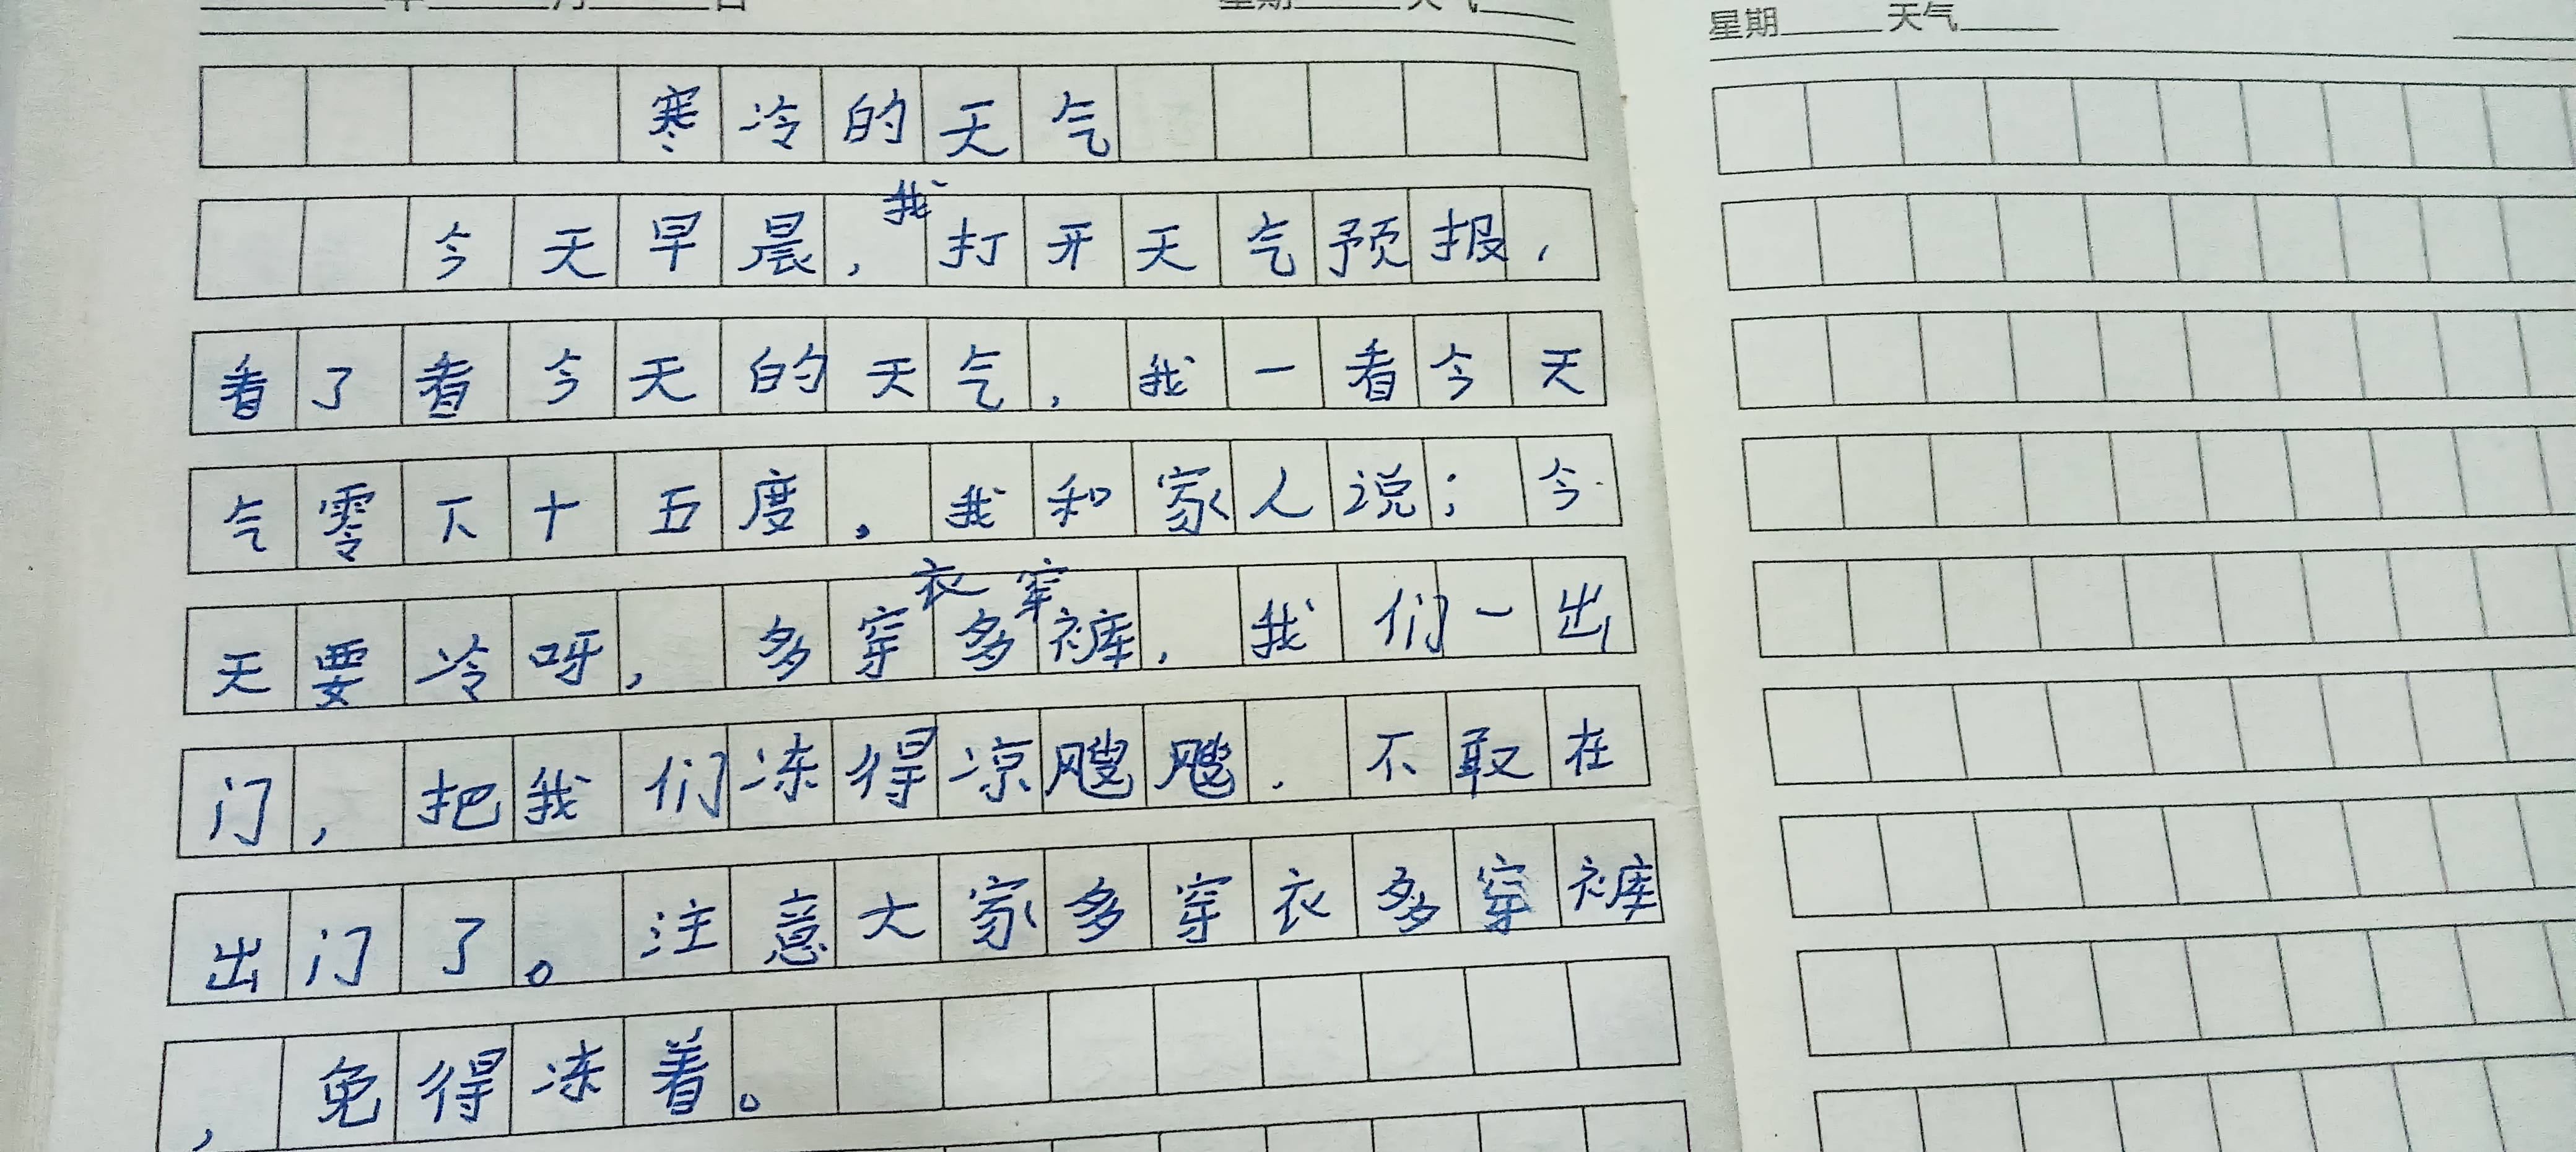 年 月 日 星期 天气
寒冷的天气
今天早晨，我打开天气预报，
看了看今天的天气，我一看今天
气零下十五度。我和家人说；今
天要冷呀，多穿衣多穿裤，我们一出
门，把我们冻得凉飕飕．不取在
出门了。注意大家多穿衣多穿裤
，免得冻着。
星期 天气